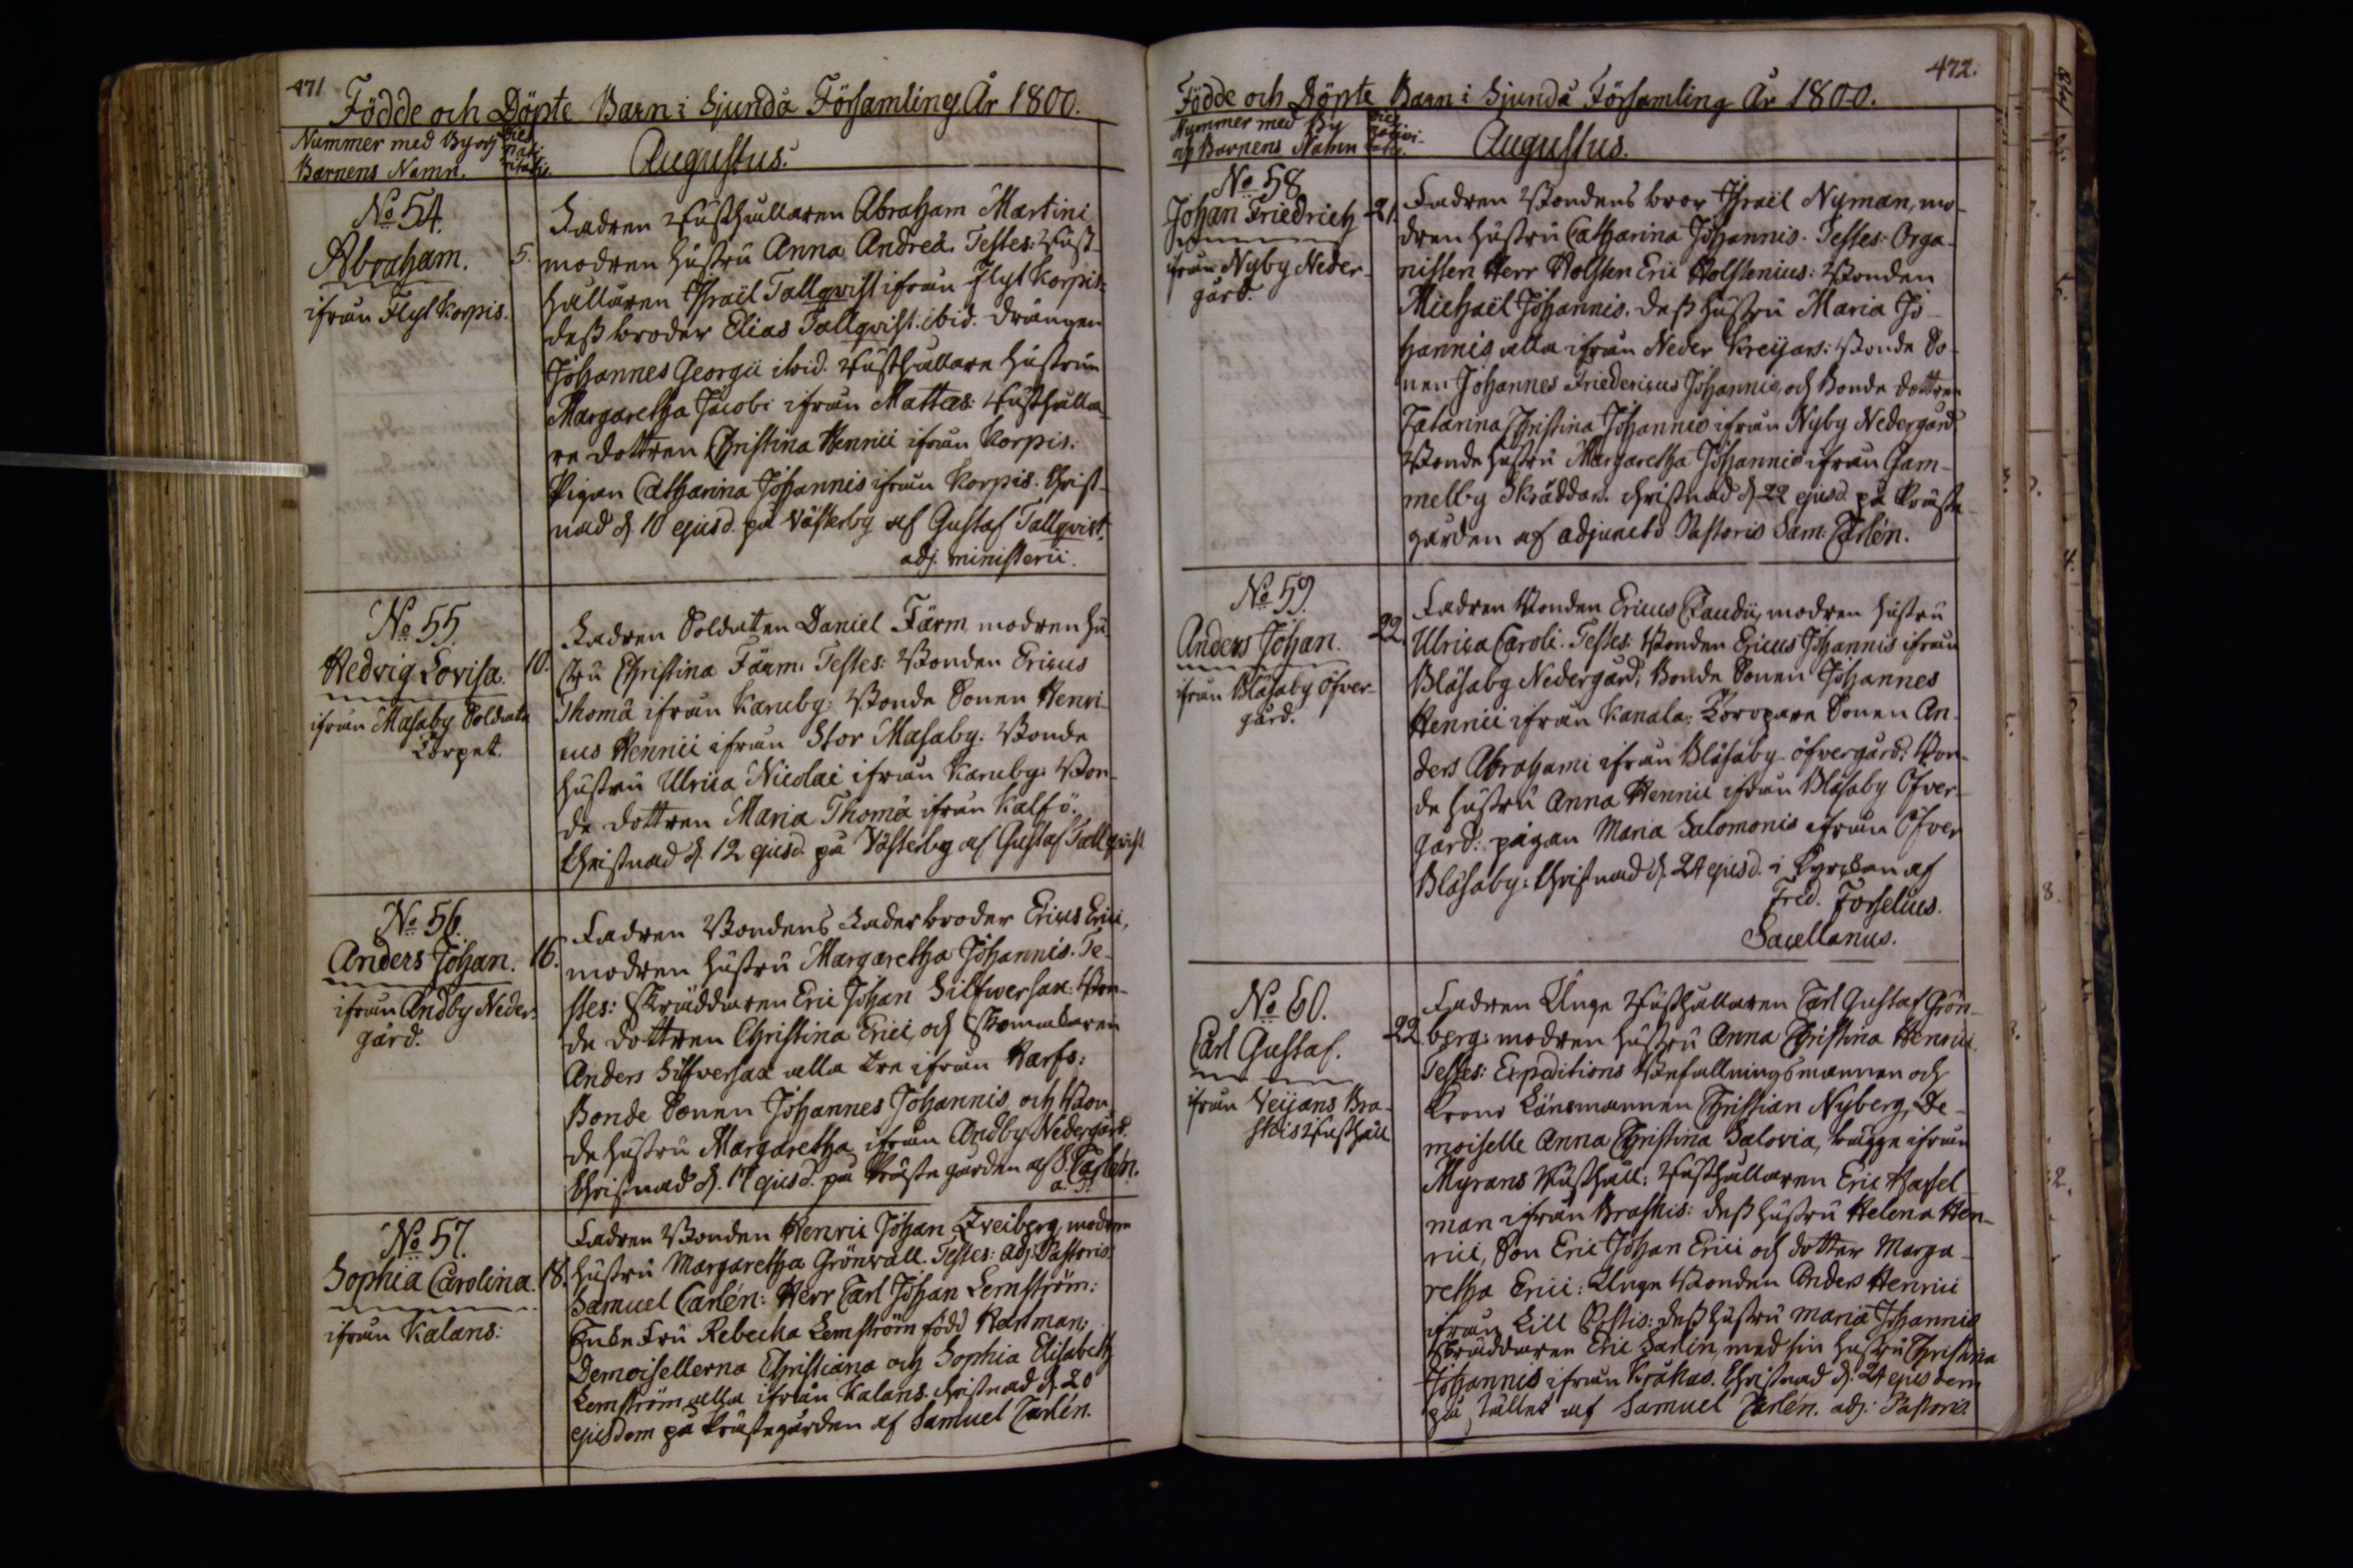 471
Födde och Döpte Barn i Sjundå Församling År 1800.
Nummer med By och
Barnens Namn.
Dies
nati-
vitatis.
Augustus.
No 54.
Abraham.
ifrån Flyt Korpis.
5.
Fadren Rusthållaren Abraham Martini
modren hustru Anna Andreä. Testes: Rust-
hållaren Israël Tallqvist ifrån Flyt Korpis:
dess broder Elias Tallqvist. ibid. drängen
Johannes Georgii ibid. Rusthållare hustrun
Margaretha Jacobi ifrån Mattas: Rusthålla-
re dottren Christina Henrici ifrån Korpis:
Pigan Catharina Johannis ifrån Korpis. Christ-
nad d. 10 ejusd. på Västerby af Gustaf Tallqvist.
adj. ministerii.
No 55.
Hedvig Lovisa.
ifrån Masaby Soldate
Torpet.
10.
Fadren Soldaten Daniel Färm modren hu-
stru Christina Färm. Testes: Bonden Ericus
Thomä ifrån Karuby: Bonde Sonen Henri-
cus Henrici ifrån Stor Masaby. Bonde
hustru Ulrica Nicolai ifrån Karuby: Bon-
de dottren Maria Thomä ifrån Kalfö.
Christnad d. 12 ejusd. på Västerby af Gustaf Tallqvist
No 56.
Anders Johan.
ifrån Andby Neder-
gård.
16.
Fadren Bondens Fader broder Ericus Erici,
modren hustru Margaretha Johannis. Te-
stes: Skräddaren Eric Johan Silfwersax: Bon-
de dottren Christina Erici, och Skomakaren
Anders Silfversax alla tre ifrån Harfs:
Bonde Sonen Johannes Johannis och Bon-
de hustru Margaretha ifrån Andby Nedergård.
Christnad d. 17 ejusd. på Prästegården af S. Carlén.
a. P.
No 57.
Sophia Carolina.
ifrån Kalans:
18.
Fadren Bonden Henric Johan Zweiberg modren
hustru Margaretha Grönvall. Testes: adj. Pastoris
Samuel Carlén: Herr Carl Johan Lemström:
Enke Fru Rebecka Lemström född Hartman:
Demoisellerna Christiana och Sophia Elisabeth
Lemström alla ifrån Kalans. Christnad d. 20
ejusdem på Prästegården af Samuel Carlén.
472.
Födde och Döpte Barn i Sjundå Församling År 1800.
Nummer med By
och Barnens Namn
Dies
nativi-
tatis.
Augustus.
No 58
Johan Friedrich
ifrån Nyby Neder-
gård.
21.
Fadren Bondens bror Israël Nyman, mo-
dren hustru Catharina Johannis. Testes: Orga-
nisten Herr Holsten Eric Holstenius: Bonden
Michaël Johannis. dess hustru Maria Jo-
hannis alla ifrån Neder Kreijars: Bonde So-
nen Johannes Friedericus Johannis, och Bonde dottren
Catarina Christina Johannis ifrån Nyby Nedergård
Bonde hustru Margaretha Johannis ifrån Gam-
melby Skräddars. Christnad d. 22 ejusd. på Präste-
gården af adjuncto Pastoris Sam: Carlén.
No 59.
Anders Johan.
ifrån Blåsaby Öfver-
gård.
22.
Fadren Bonden Ericus Claudii, modren hustru
Ulrica Caroli. Testes: Bonden Ericus Johannis ifrån
Blåsaby Nedergård; Bonde Sonen Johannes
Henrici ifrån Kanala: Torpare Sonen An-
ders Abrahami ifrån Blåsaby öfvergård: Bon-
de hustru Anna Henrici ifrån Blåsaby Öfver-
gård: pigan Maria Salomonis ifrån Öfver
Blåsaby: Christnad d. 24 ejusd. i Kyrckan af
Fred. Forselius.
Sacellanus.
No 60.
Carl Gustaf.
ifrån Veijans Bra-
skis Rusthåll
22.
Fadren Unge Rusthållaren Carl Gustaf Grön-
berg: modren hustru Anna Christina Henrici.
Testes: Expeditions Befallningsmannen och
Krono Länsmannen Christian Nyberg, De-
moiselle Anna Christina Salovia, bägge ifrån
Myrans Rusthåll: Rusthållaren Eric Hassel-
man ifrån Braskis: dess hustru Helena Hen-
rici, Son Eric Johan Erici och dotter Marga-
retha Erici: Unge Bonden Anders Henrici
ifrån Lill Ristis: dess hustru Maria Johannis
Skräddaren Eric Sarlin, med sin hustru Christina
Johannis ifrån Kråkas. Christnad d. 24 ejusdem
på stället af Samuel Carlén. adj: Pastoris.